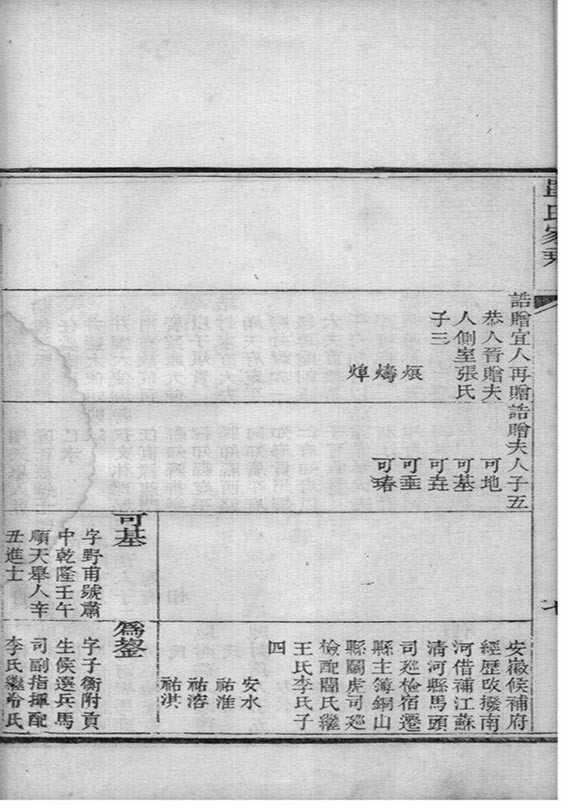 氏家乘
誥贈宜人再贈
恭人晉贈夫
人側室張氏
子三
烺
燽
誥贈夫人子五
可地
可基
可垚
可垂
可基
字野甫號蕭
中乾隆壬午
順天舉人辛
丑進士
安徽候補府
經歷改撥南
河借補江蘇
清河縣馬頭
司廵檢宿遷
縣主簿銅山
縣關虎司廵
檢配閻氏繼
王氏李氏子
四
安水
祐淮
祐溶
祐淇
爲鋆
字子衡附貢
生候選兵馬
司副指揮配
李氏繼氏